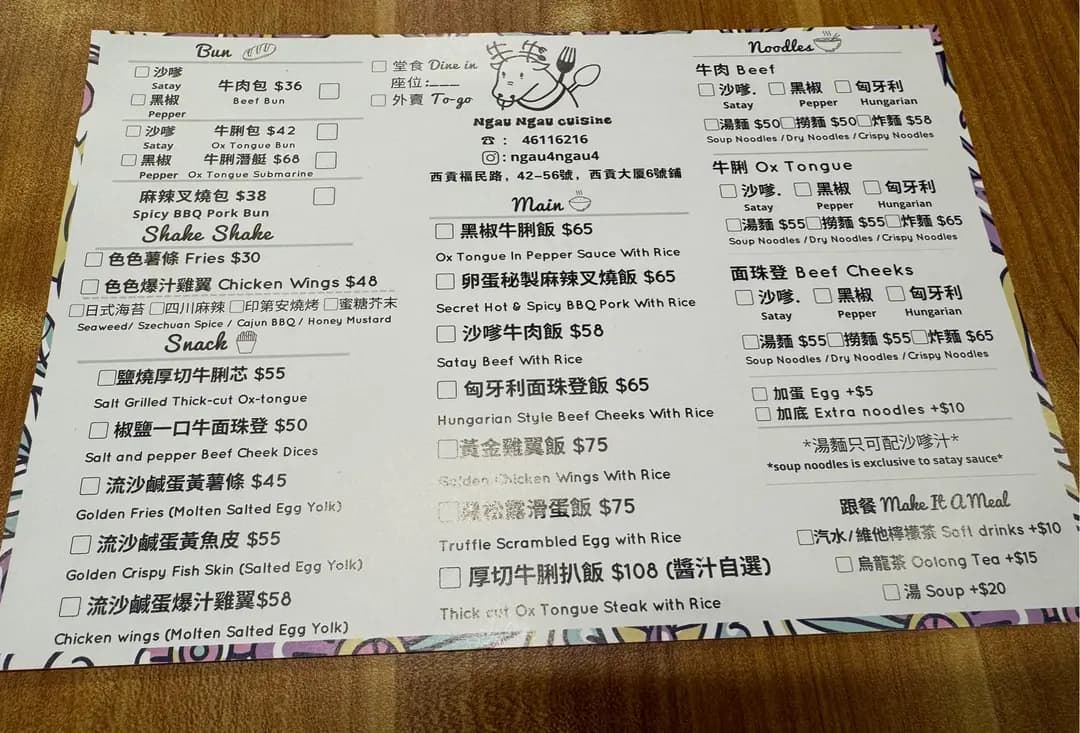 Bun
沙嗲
Satay
黑椒
Pepper
牛肉包 $36
Beef Bun
沙嗲
Satay
牛脷包 $42
Ox Tongue Bun
黑椒
Pepper
牛脷潛艇 $68
Ox Tongue Submarine
麻辣叉燒包 $38
Spicy BBQ Pork Bun
Shake Shake
色色薯條 Fries $30
色色爆汁雞翼 Chicken Wings $48
日式海苔 四川麻辣 印第安燒烤 蜜糖芥末
Seaweed/ Szechuan Spice / Cajun BBQ / Honey Mustard
Snack
鹽燒厚切牛脷芯 $55
Salt Grilled Thick-cut Ox-tongue
椒鹽一口牛面珠登 $50
Salt and pepper Beef Cheek Dices
流沙鹹蛋黃薯條 $45
Golden Fries (Molten Salted Egg Yolk)
流沙鹹蛋黃魚皮 $55
Golden Crispy Fish Skin (Salted Egg Yolk)
流沙鹹蛋爆汁雞翼$58
Chicken wings (Molten Salted Egg Yolk)
堂食 Dine in
座位:___
外賣 To-go
牛 牛
Ngau Ngau cuisine
☎ : 46116216
: ngau4ngau4
西貢福民路，42-56號，西貢大廈6號鋪
Main
黑椒牛脷飯 $65
Ox Tongue In Pepper Sauce With Rice
卵蛋秘製麻辣叉燒飯 $65
Secret Hot & Spicy BBQ Pork With Rice
沙嗲牛肉飯 $58
Satay Beef With Rice
匈牙利面珠登飯 $65
Hungarian Style Beef Cheeks With Rice
黃金雞翼飯 $75
Golden Chicken Wings With Rice
黑松露滑蛋飯 $75
Truffle Scrambled Egg with Rice
厚切牛脷扒飯 $108 (醬汁自選)
Thick cut Ox Tongue Steak with Rice
Noodles
牛肉 Beef
沙嗲. 黑椒 匈牙利
Satay Pepper Hungarian
湯麵 $50 撈麵 $50 炸麵 $58
Soup Noodles /Dry Noodles /Crispy Noodles
牛脷 Ox Tongue
沙嗲. 黑椒 匈牙利
Satay Pepper Hungarian
湯麵 $55 撈麵 $55 炸麵 $65
Soup Noodles /Dry Noodles /Crispy Noodles
面珠登 Beef Cheeks
沙嗲. 黑椒 匈牙利
Satay Pepper Hungarian
湯麵 $55 撈麵 $55 炸麵 $65
Soup Noodles /Dry Noodles /Crispy Noodles
加蛋 Egg +$5
加底 Extra noodles +$10
*湯麵只可配沙嗲汁*
*soup noodles is exclusive to satay sauce*
跟餐 Make It A Meal
汽水/維他檸檬茶 Soft drinks +$10
烏龍茶 Oolong Tea +$15
湯 Soup +$20